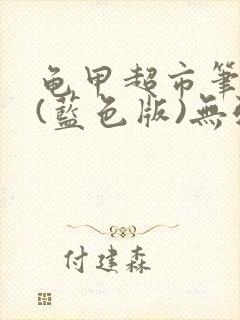 龟甲超市筆
(藍色版)無
付建森